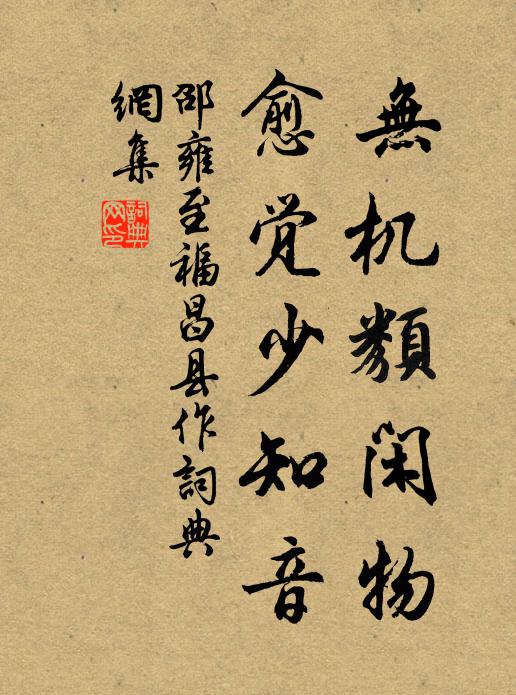 無机類闲物
愈觉少知音
邵雍至福昌县作詞典
網集
詞典
网印